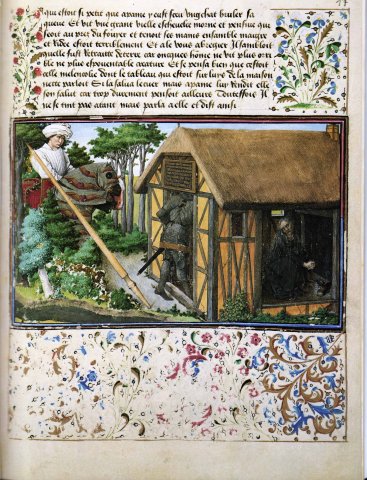 qui estoit si petit que apaine y eust sceu ung chat bruler sa
queue Et vit une grant vieille eschevelee morne et pensive qui
seoit au pres du fouyer et tenoit ses mains ensemble maigre
et ridee estoit terriblement Et a le vous abregier Il sembloit
quelle fust retraitte deterre car oncques homme ne vit plus orri
ble ne plus espouentable creature Et se pensa bien que cestoit
celle melencolie dont le tableau qui estoit sur luys de la maison
nette parloit Si la salua le cuer mais apaine luy rendit elle
son salut car trop durement pensoit ailleurs Toutesfois Il
ne se tint pas atant mais parla a elle et dist ainsi